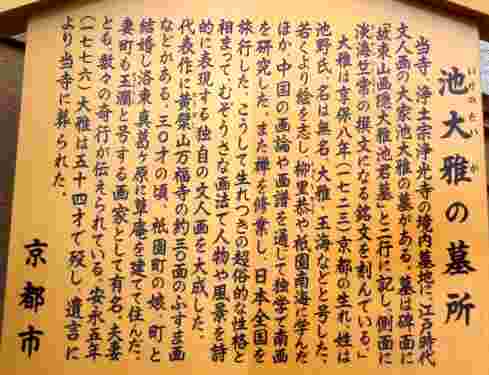 いけのたいが
池大雅の墓所
当寺、浄土宗浄光寺の境内墓地に、江戸時代
文人画の大家池大雅の墓がある。墓は碑面に
「故東山画隠大雅池君墓」と二行に記し、側面に
淡海竺常の撰文になる銘文を刻んでいる。
大雅は享保八年(一七二三)京都の生れ、姓は
池野氏、名は無名、大雅、玉海などと号した。
若くより絵を志し、柳里恭や祇園南海に学んだ
ほか、中国の画論や画譜を通して独学で南画
を研究した。また禅を修業し、日本全国を
旅行した。こうして生れつきの超俗的な性格と
相まって、むぞうさな画法で人物や風景を詩
的に表現する独自の文人画を大成した。
代表作に黄檗山万福寺の約三〇面のふすま画
などがある。三〇才の頃、祇園町の娘、町と
結婚し洛東真葛ヶ原に草庵を建てて住んだ。
妻町も玉瀾と号する画家として有名、夫妻
とも、数々の奇行が伝えられている。安永五年
(一七七六)大雅は五十四才で歿し、遺言に
より当寺に葬られた。
京都市